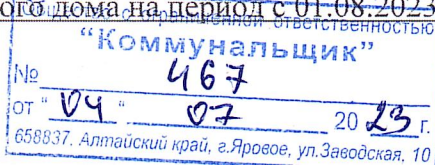 ого дома на период с 01.08.2023
ограниченной ответственностью
“Коммунальщик”
№ 467
от " 04 " 07 20 23 г.
658837. Алтайский край, г.Яровое, ул.Заводская, 10